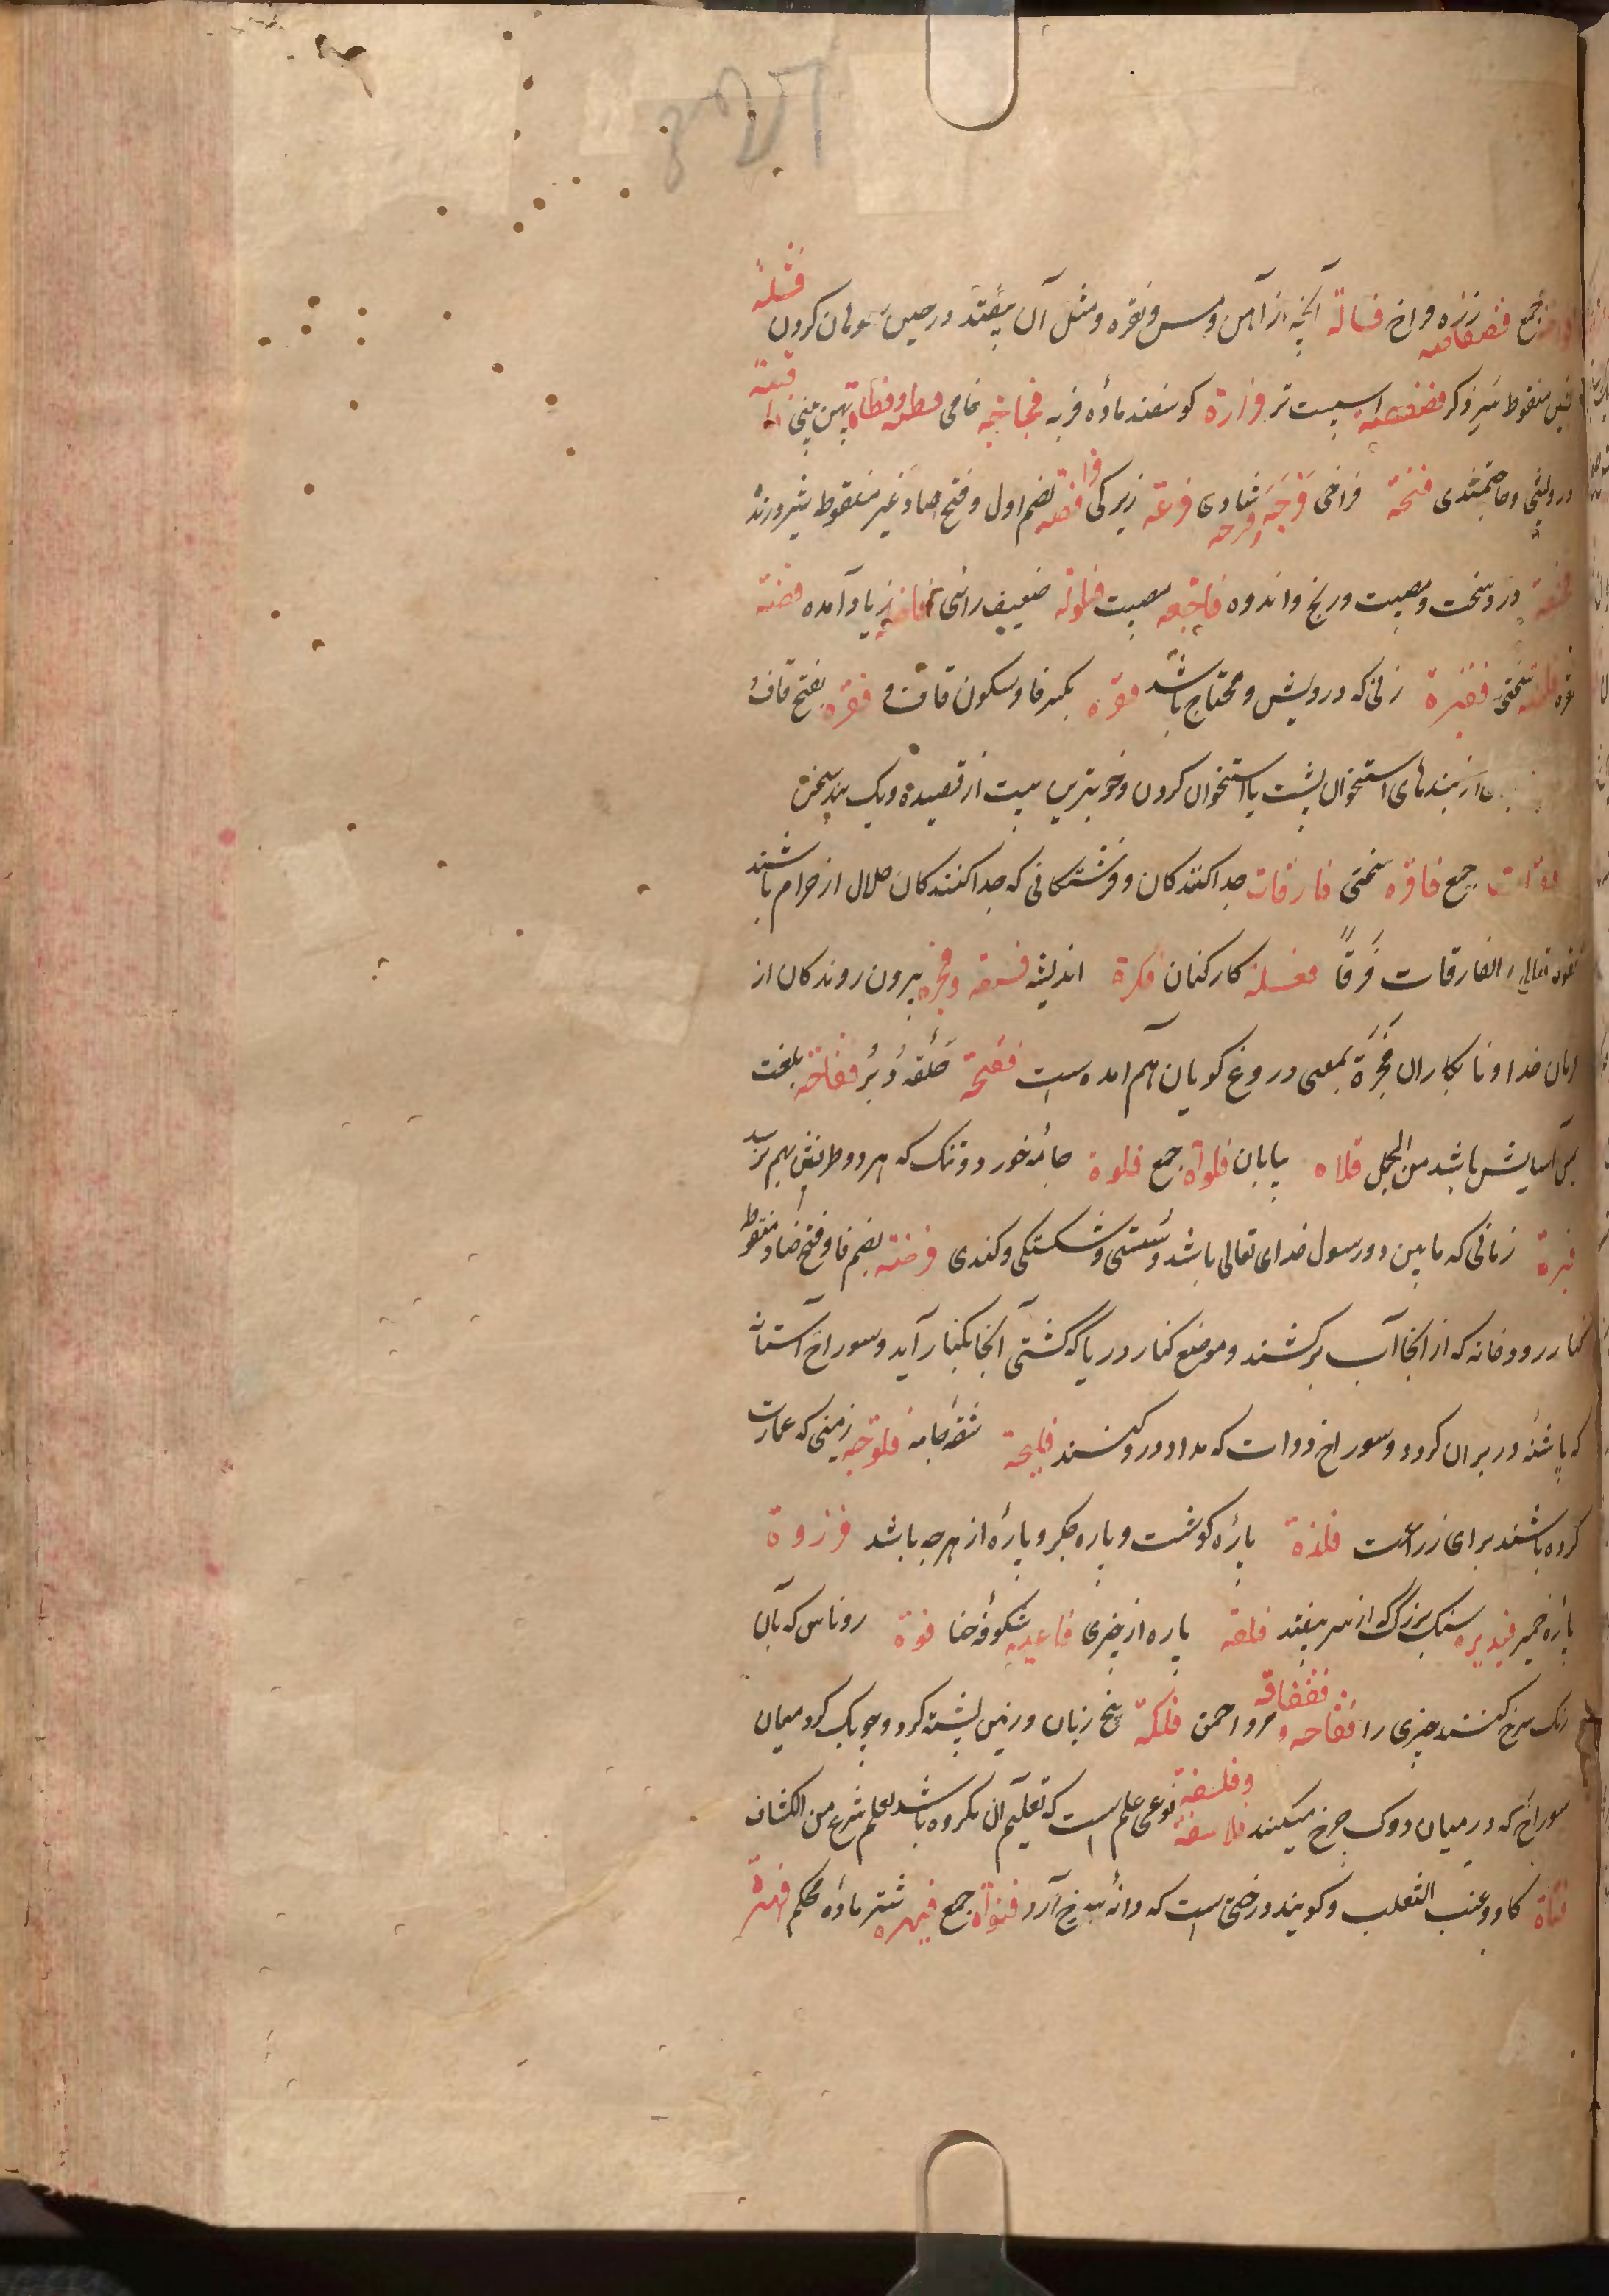 جمع فضفاضه زره فراخ فسالة آنچه از آهن و مس و نقره و مثل آن بیفتد در حین سوهان کردن فشلة
منقوط سیر و کر فصفصه اسپست تر فزارة کوسفند ماده فربه فجاجه خامی فطسه پهن بینی
درویشی و حاجتمندی فتحة فراخی فرجه و فرحه شادی فرعة زیرکی بضم اول و فتح صاد غیر منقوط شیر درنده
درد سخت و مصیبت و رنج و اندوه فاجعه مصیبت ضعیف رائی زیاد آمده فضة
نقره سختی فقیرة زنی که درویش و محتاج باشد فقره بکسر فا و سکون قاف و فقره بفتح قاف
از بندهای استخوان پشت یا استخوان کردن و خوبترین بیت از قصیده و یک بند سخن
جمع فاقره سختی فارقات جدا کنندکان و فرشتکانی که جدا کنندکان حلال از حرام باشند
تعالی و الفارقات فرقا فعله کارکنان فکرة اندیشه فسقه و فجره بیرون روندکان از
امان خدا و نابکاران فجرة بمعنی دروغ کویان هم امده است فقحة حلقه دبر فقاحة بلغت
باشد من المجمل فلاه بیابان فلوات جمع فلوة جامه خورد و تنک که هر دو طرفش بهم نرسد
فترة زمانی که ما بین دو رسول خدای تعالی باشد و سستی و شکستکی و کندی فرضة بضم فا و فتح ضاد منقوط
کنار رودخانه که از انجا آب برکشند و موضع کنار دریا که کشتی آنجا بکنار آید و سوراخ آستانه
که پاشنه در بران کردد و سوراخ دوات که مداد در و کنند فلیجة شقه جامه فلوجه زمینی که عمارت
کرده باشند برای زراعت فلذة پاره کوشت و پاره جکر و پاره از هرچه باشد فرزدة
پاره خمیر فندیره سنک بزرک که از سر بیفتد فلقه پاره از چیزی فاغیه شکوفه حنا فوة روناس که بآن
رنک سرخ کنند چیزی را فقاحه و فقفاقه مرد احمق فلکة بیخ زبان و زمین پشته کرد و چوبک کرد میان
سوراخ که در میان دوک چرخ میکنند فلاسفة و فلسفة نوعی علم است که تعلیم ان مکروه باشد لعلم شرع من الکشاف
فناة کاو و عنب الثعلب و کویند درختی است که دانه سرخ آرد فنوات جمع فیهره شتر ماده محکم فهرة